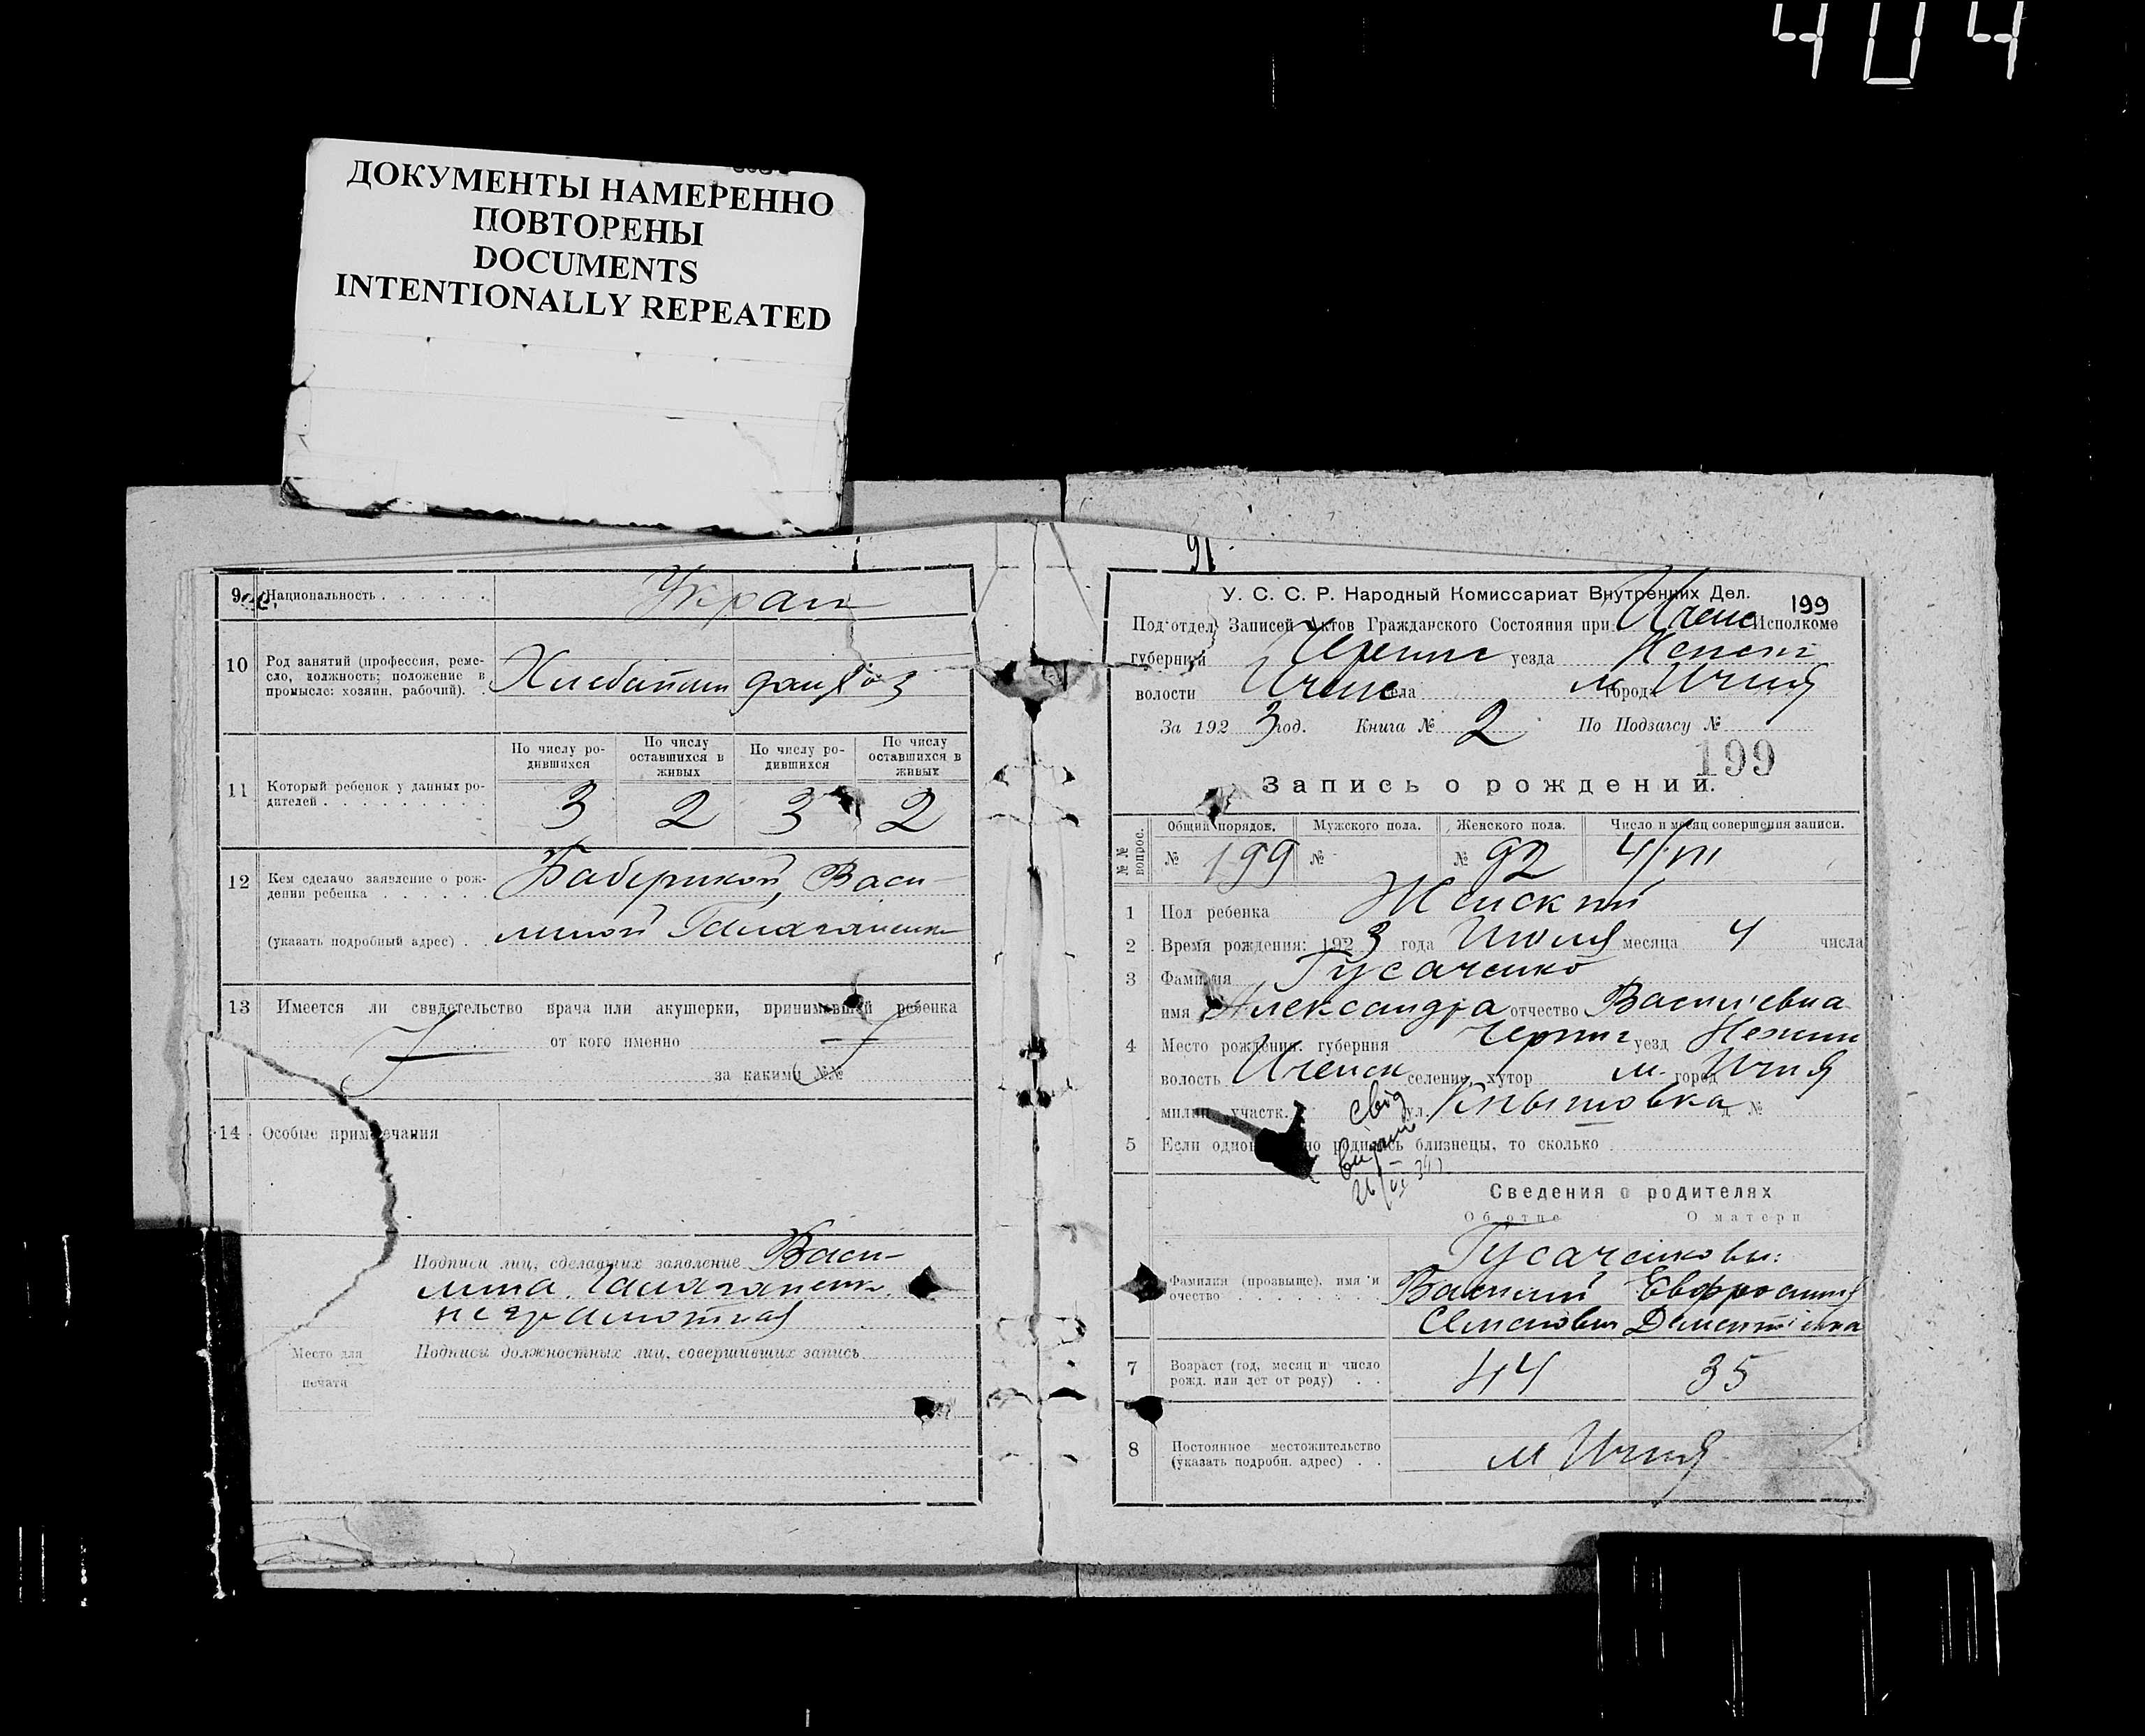 404
ДОКУМЕНТЫ НАМЕРЕННО
ПОВТОРЕНЫ
DOCUMENTS
INTENTIONALLY REPEATED
9 Национальность Украин
10 Род занятий (профессия, реме-
сло, должность; положение в
промысле: хозяин, рабочий). Хлебопаш домхоз
По числу ро-
дившихся
По числу
оставшихся в
живых
По числу ро-
дившихся
По числу
оставшихся в
живых
11 Который ребенок у данных ро-
дителей
3 2 3 2
12 Кем сделано заявление о рож-
дении ребенка Баберикой, Васи-
(указать подробный адрес) линой Галаганенк
13 Имеется ли свидетельство врача или акушерки, принимавшей ребенка
от кого именно
за какими №№
14 Особые примечания
Подписи лиц, сделавших заявление Васи-
лина Галаганенк
неграмотная
Место для
печати
Подписи должностных лиц, совершивших запись
91
У. С. С. Р. Народный Комиссариат Внутренних Дел.
199
Под‘отдел Записей Актов Гражданского Состояния при Ичнс Исполкоме
губернии Черниг уезда Нежин
волости Ичнс села м. города Ичня
За 1923 год. Книга № 2 По Подзагсу №
199
Запись о рождении.
№№ вопрос.
Общий порядок. Мужского пола. Женского пола. Число и месяц совершения записи.
№ 199 № № 92 4/VII
1 Пол ребенка Женский
2 Время рождения: 1923 года Июля месяца 4 числа
3 Фамилия Гусаченко
имя Александра отчество Васильевна
4 Место рождения: губерния Черниг уезд Нежин
волость Иченск селение, хутор м. город Ичня
милиц. участк. ул. №
свід
видан
5 Если одновременно родились близнецы, то сколько
Сведения о родителях
Об отце О матери
Гусаченковы:
Фамилия (прозвище), имя и
отчество Василий Евфросиния
Семенович Дементиевна
7 Возраст (год, месяц и число
рожд. или лет от роду) 44 35
8 Постоянное местожительство
(указать подробн. адрес) м. Ичня